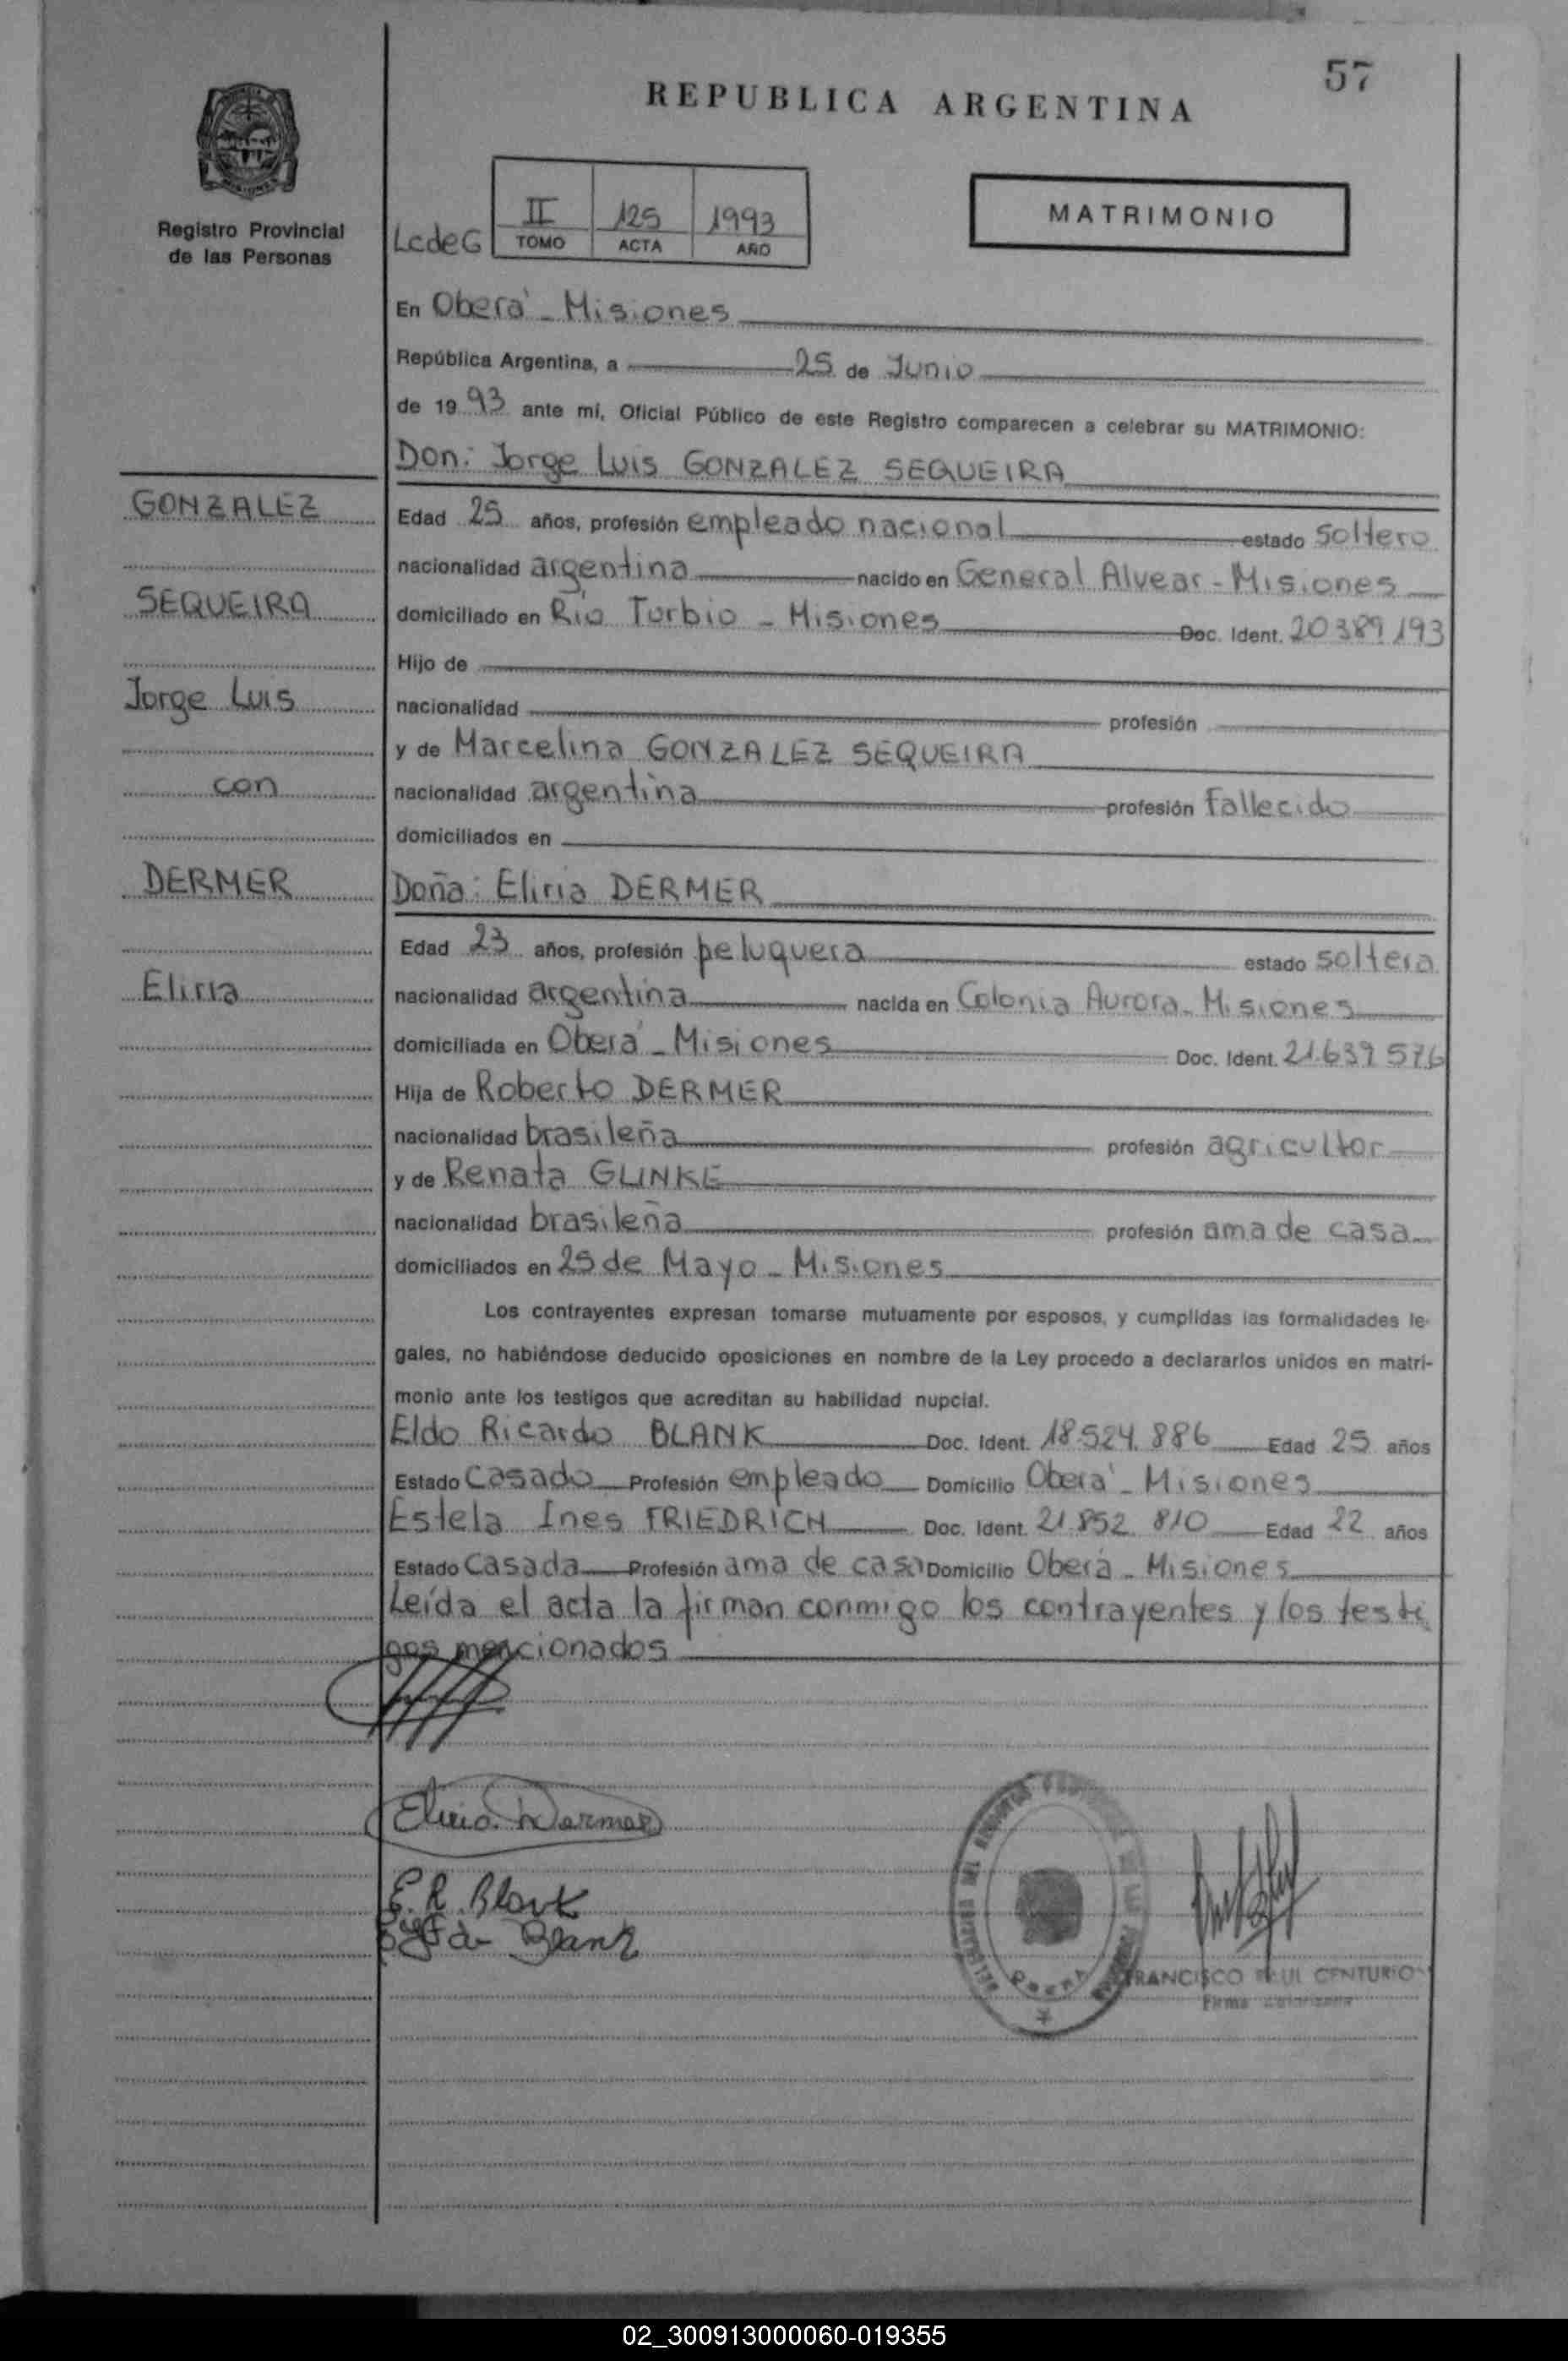 57
REPUBLICA ARGENTINA
Registro Provincial
de las Personas
LcdeG
II 125 1993
TOMO ACTA AÑO
MATRIMONIO
En Oberá - Misiones
República Argentina, a 25 de Junio
de 1993 ante mí, Oficial Público de este Registro comparecen a celebrar su MATRIMONIO:
Don: Jorge Luis GONZALEZ SEQUEIRA
Edad 25 años, profesión empleado nacional estado soltero
nacionalidad argentina nacido en General Alvear - Misiones
domiciliado en Río Turbio - Misiones Doc. Ident. 20389193
Hijo de
nacionalidad profesión
y de Marcelina GONZALEZ SEQUEIRA
nacionalidad argentina profesión fallecido
domiciliados en
Doña: Eliria DERMER
Edad 23 años, profesión peluquera estado soltera
nacionalidad argentina nacida en Colonia Aurora - Misiones
domiciliada en Oberá - Misiones Doc. Ident. 21.639 576
Hija de Roberto DERMER
nacionalidad brasileña profesión agricultor
y de Renata GLINKE
nacionalidad brasileña profesión ama de casa
domiciliados en 25 de Mayo - Misiones
Los contrayentes expresan tomarse mutuamente por esposos, y cumplidas las formalidades le-
gales, no habiéndose deducido oposiciones en nombre de la Ley procedo a declararlos unidos en matri-
monio ante los testigos que acreditan su habilidad nupcial.
Eldo Ricardo BLANK Doc. Ident. 18.524.886 Edad 25 años
Estado Casado Profesión empleado Domicilio Oberá - Misiones
Estela Ines FRIEDRICH Doc. Ident. 21.852.810 Edad 22 años
Estado Casada Profesión ama de casa Domicilio Oberá - Misiones
Leída el acta la firman conmigo los contrayentes y los testi
gos mencionados
GONZALEZ
SEQUEIRA
Jorge Luis
con
DERMER
Eliria
Eliria Dermer
E. R. Blank
de Blank
OBERA
FRANCISCO RAUL CENTURIO
Firma
02_300913000060-019355